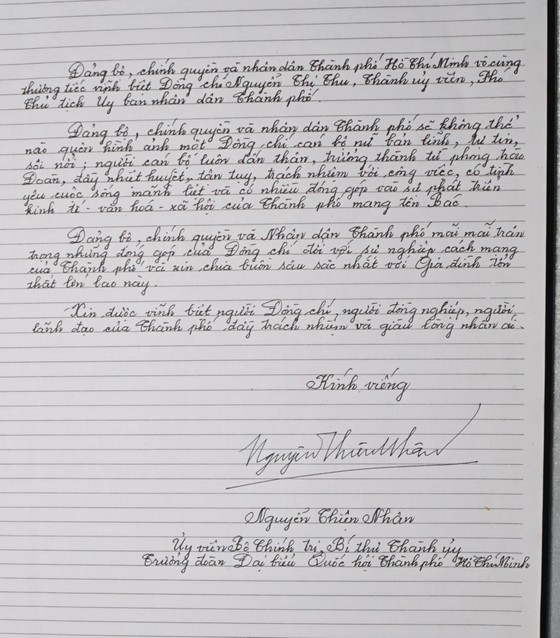 Đảng bộ, chính quyền và nhân dân Thành phố Hồ Chí Minh vô cùng
thương tiếc vĩnh biệt Đồng chí Nguyễn Thị Thu, Thành ủy viên, Phó
Chủ tịch Ủy ban nhân dân Thành phố.
Đảng bộ, chính quyền và nhân dân Thành phố sẽ không thể
nào quên hình ảnh một Đồng chí cán bộ nữ bản lĩnh, tự tin,
sôi nổi; người cán bộ luôn dấn thân, trưởng thành từ phong trào
Đoàn, đầy nhiệt huyết, tận tụy, trách nhiệm với công việc, có tình
yêu cuộc sống mãnh liệt và có nhiều đóng góp vào sự phát triển
kinh tế - văn hoá - xã hội của Thành phố mang tên Bác.
Đảng bộ, chính quyền và Nhân dân Thành phố mãi mãi trân
trọng những đóng góp của Đồng chí đối với sự nghiệp cách mạng
của Thành phố và xin chia buồn sâu sắc nhất với Gia đình tổn
thất lớn lao này.
Xin được vĩnh biệt người Đồng chí, người đồng nghiệp, người
lãnh đạo của Thành phố đầy trách nhiệm và giàu lòng nhân ái.
Kính viếng
Nguyễn Thiện Nhân
Nguyễn Thiện Nhân
Ủy viên Bộ Chính trị, Bí thư Thành ủy
Trưởng đoàn Đại biểu Quốc hội Thành phố Hồ Chí Minh